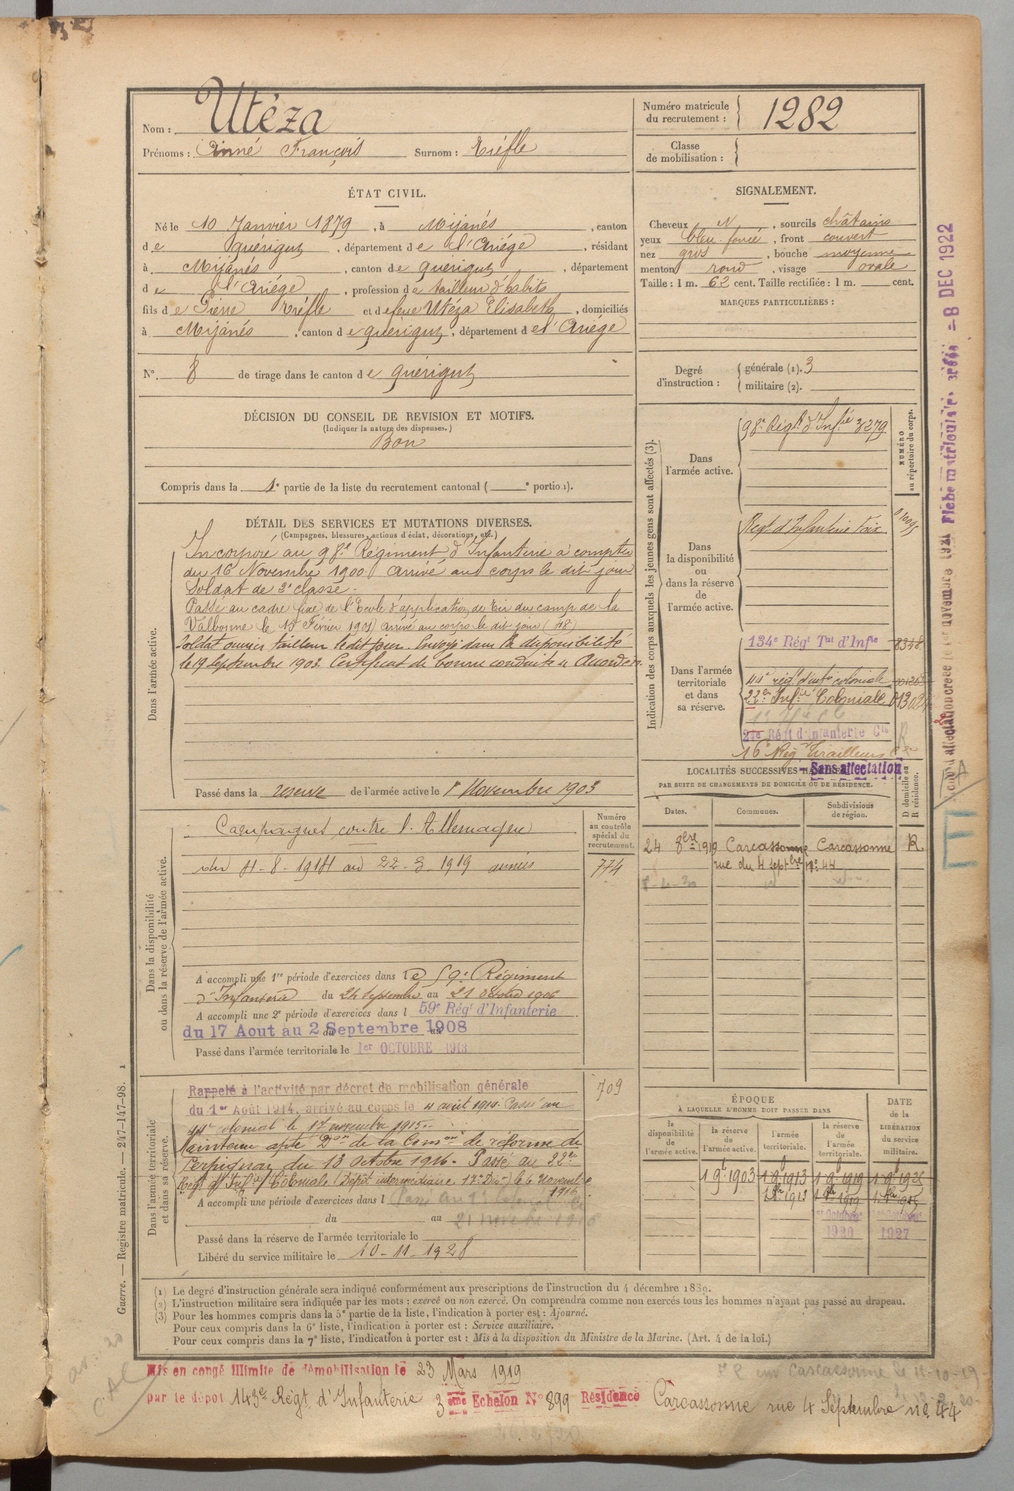 Nom : Utéza
Prénoms : Aimé François Surnom : Trèfle
Numéro matricule du recrutement : 1282
Classe de mobilisation :
ÉTAT CIVIL.
Né le 10 Janvier 1879, à Mijanés, canton
de Quérigut, département de l'Ariége, résidant
à Mijanés, canton de Quérigut, département
de l'Ariége, profession de tailleur d'habits
fils de Pierre Trèfle et de feue Utéza Elisabeth, domiciliés
à Mijanés, canton de Quérigut, département de l'Ariége
N°. 8 de tirage dans le canton de Quérigut
SIGNALEMENT.
Cheveux N, sourcils châtains
yeux bleu foncé, front couvert
nez gros, bouche moyenne
menton rond, visage ovale
Taille : 1 m. 62 cent. Taille rectifiée : 1 m. cent.
MARQUES PARTICULIÈRES :
Degré d'instruction : générale (1). 3
militaire (2).
DÉCISION DU CONSEIL DE REVISION ET MOTIFS.
(Indiquer la nature des dispenses.)
Bon
Compris dans la 1e partie de la liste du recrutement cantonal ( e portion).
DÉTAIL DES SERVICES ET MUTATIONS DIVERSES.
(Campagnes, blessures, actions d'éclat, décorations, etc.)
Dans l'armée active.
Incorporé au 98e Régiment d'Infanterie à compter
du 16 Novembre 1900. Arrivé au corps le dit jour
Soldat de 2e classe.
Passé au cadre fixe de l'Ecole d'application de tir du camp de la
Valbonne le arrivé au corps le dit jour
Soldat ouvrier tailleur le dit jour. Envoyé dans la disponibilité
le 19 septembre 1903. Certificat de bonne conduite "Accordé".
Passé dans la réserve de l'armée active le 1er Novembre 1903
Indication des corps auxquels les jeunes gens sont affectés (3).
NUMÉRO au répertoire du corps.
Dans l'armée active.
98e Régt d'Infie 3279
Dans la disponibilité ou dans la réserve de l'armée active.
Régt d'Infanterie Foix
Dans l'armée territoriale et dans sa réserve.
134e Régt Tal d'Infie
44e rég. d'infie coloniale
22e Infie Coloniale
16e Rég Tirailleurs
Sans affectation
LOCALITÉS SUCCESSIVES
PAR SUITE DE CHANGEMENTS DE DOMICILE OU DE RÉSIDENCE.
Dates. Communes. Subdivisions de région. D domicile ou R résidence.
24 8bre 1919 Carcassonne Carcassonne R.
rue du 4 septbre no 44
Dans la disponibilité ou dans la réserve de l'armée active.
Numéro au contrôle spécial du recrutement.
774
Campagnes contre l'Allemagne
du 4-8-1914 au 22-3-1919
A accompli une 1re période d'exercices dans le 59e Régiment
d'Infanterie du 24 septembre au 21 octobre 1906
A accompli une 2e période d'exercices dans l 59e Régt d'Infanterie
du 17 Aout au 2 Septembre 1908
Passé dans l'armée territoriale le 1er OCTOBRE 1913
Dans l'armée territoriale et dans sa réserve.
709
Rappelé à l'activité par décret de mobilisation générale
du 1er Août 1914, arrivé au corps le 4 août 1914. Passé au
44e colonial le 17 novembre 1915.
Maintenu apte Don de la Comon de réforme de
Perpignan du 13 octobre 1916. Passé au 22e
Régt d'Infie Coloniale (Dépôt intermédiaire 17e Don) le 6 Novembre
1916
A accompli une période d'exercices dans l
du au
Passé dans la réserve de l'armée territoriale le
Libéré du service militaire le 10-11-1928
ÉPOQUE
À LAQUELLE L'HOMME DOIT PASSER DANS
la disponibilité de l'armée active. la réserve de l'armée active. l'armée territoriale. la réserve de l'armée territoriale.
DATE de la LIBÉRATION du service militaire.
1 9e 1903 1 9e 1913 1 9e 1919 1 9e 1925
1920 1927
(1) Le degré d'instruction générale sera indiqué conformément aux prescriptions de l'instruction du 4 décembre 1889.
(2) L'instruction militaire sera indiquée par les mots : exercé ou non exercé. On comprendra comme non exercés tous les hommes n'ayant pas passé au drapeau.
(3) Pour les hommes compris dans la 5e partie de la liste, l'indication à porter est : Ajourné.
Pour ceux compris dans la 6e liste, l'indication à porter est : Service auxiliaire.
Pour ceux compris dans la 7e liste, l'indication à porter est : Mis à la disposition du Ministre de la Marine. (Art. 4 de la loi.)
Mis en congé illimité de démobilisation le 23 Mars 1919
par le dépôt 143e Régt d'Infanterie 3eme Echelon N° 899 Résidence Carcassonne rue 4 Septembre no 44
Guerre. — Registre matricule. — 247-147-98.
-8 DEC 1922